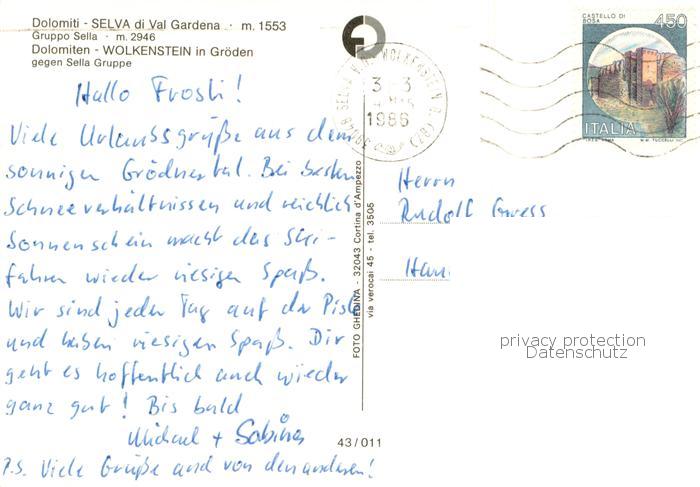 Dolomiti - SELVA di Val Gardena · m. 1553
Gruppo Sella · m. 2946
Dolomiten - WOLKENSTEIN in Gröden
gegen Sella Gruppe
Hallo Froski!
Viele Urlaubsgrüße aus dem
sonnigen Grödnertal. Bei besten
Schneeverhältnissen und reichlich
Sonnenschein macht das Ski-
fahren wieder riesigen Spaß.
Wir sind jeden Tag auf der Piste
und haben riesigen Spaß. Dir
geht es hoffentlich auch wieder
ganz gut! Bis bald
Michael + Sabine
P.S. Viele Grüße auch von den anderen!
FOTO GHEDINA - 32043 Cortina d'Ampezzo
via verocai 45 - tel. 3505
43/011
3-3
1986
CASTELLO DI
BOSA
450
ITALIA
Herrn
Rudolf
privacy protection
Datenschutz